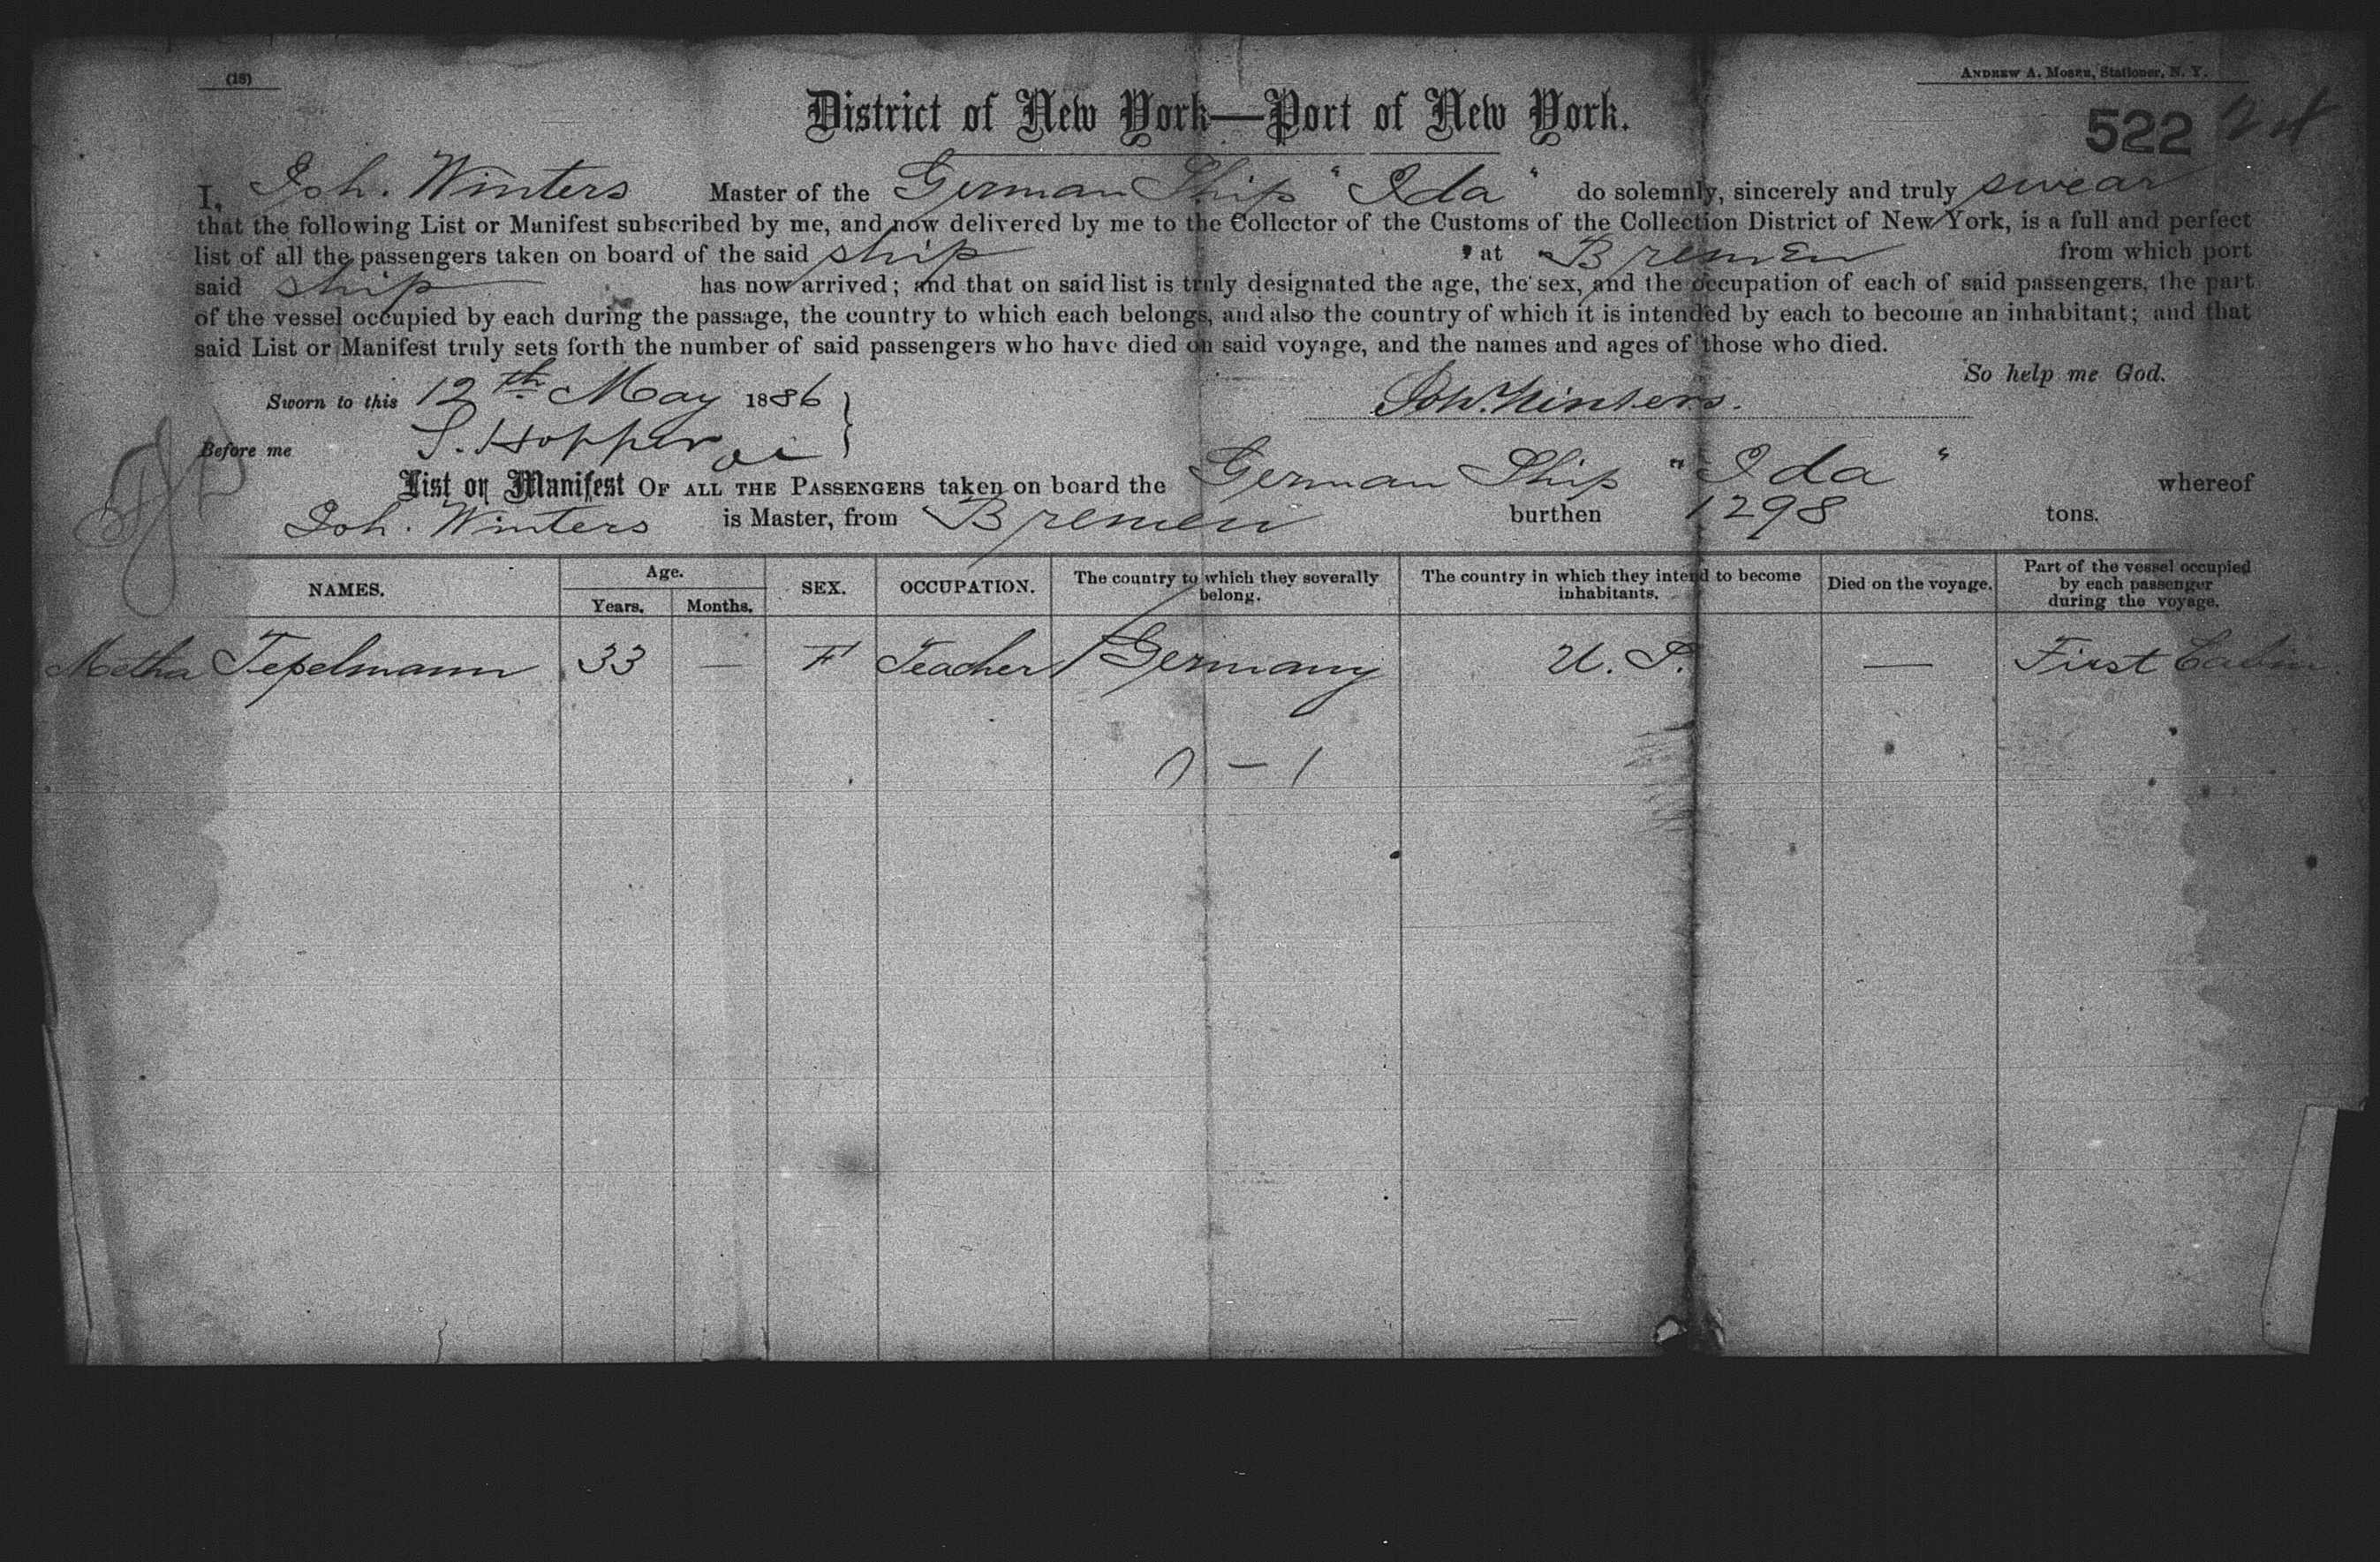 (18)
ANDREW A. MOSER, Stationer, N. Y.
District of New York—Port of New York.
522
I, Joh. Winters Master of the German Ship "Ida" do solemnly, sincerely and truly swear
that the following List or Manifest subscribed by me, and now delivered by me to the Collector of the Customs of the Collection District of New York, is a full and perfect
list of all the passengers taken on board of the said ship , at Bremen from which port
said ship has now arrived; and that on said list is truly designated the age, the sex, and the occupation of each of said passengers, the part
of the vessel occupied by each during the passage, the country to which each belongs, and also the country of which it is intended by each to become an inhabitant; and that
said List or Manifest truly sets forth the number of said passengers who have died on said voyage, and the names and ages of those who died.
So help me God.
Sworn to this 12th May 1886 } Joh. Winters.
Before me S. Hopper
List or Manifest OF ALL THE PASSENGERS taken on board the German Ship "Ida" whereof
Joh. Winters is Master, from Bremen burthen 1298 tons.
NAMES. Age. Years. Months. SEX. OCCUPATION. The country to which they severally belong. The country in which they intend to become inhabitants. Died on the voyage. Part of the vessel occupied by each passenger during the voyage.
Metha Tepelmann 33 — F Teacher Germany U. S. — First Cabin